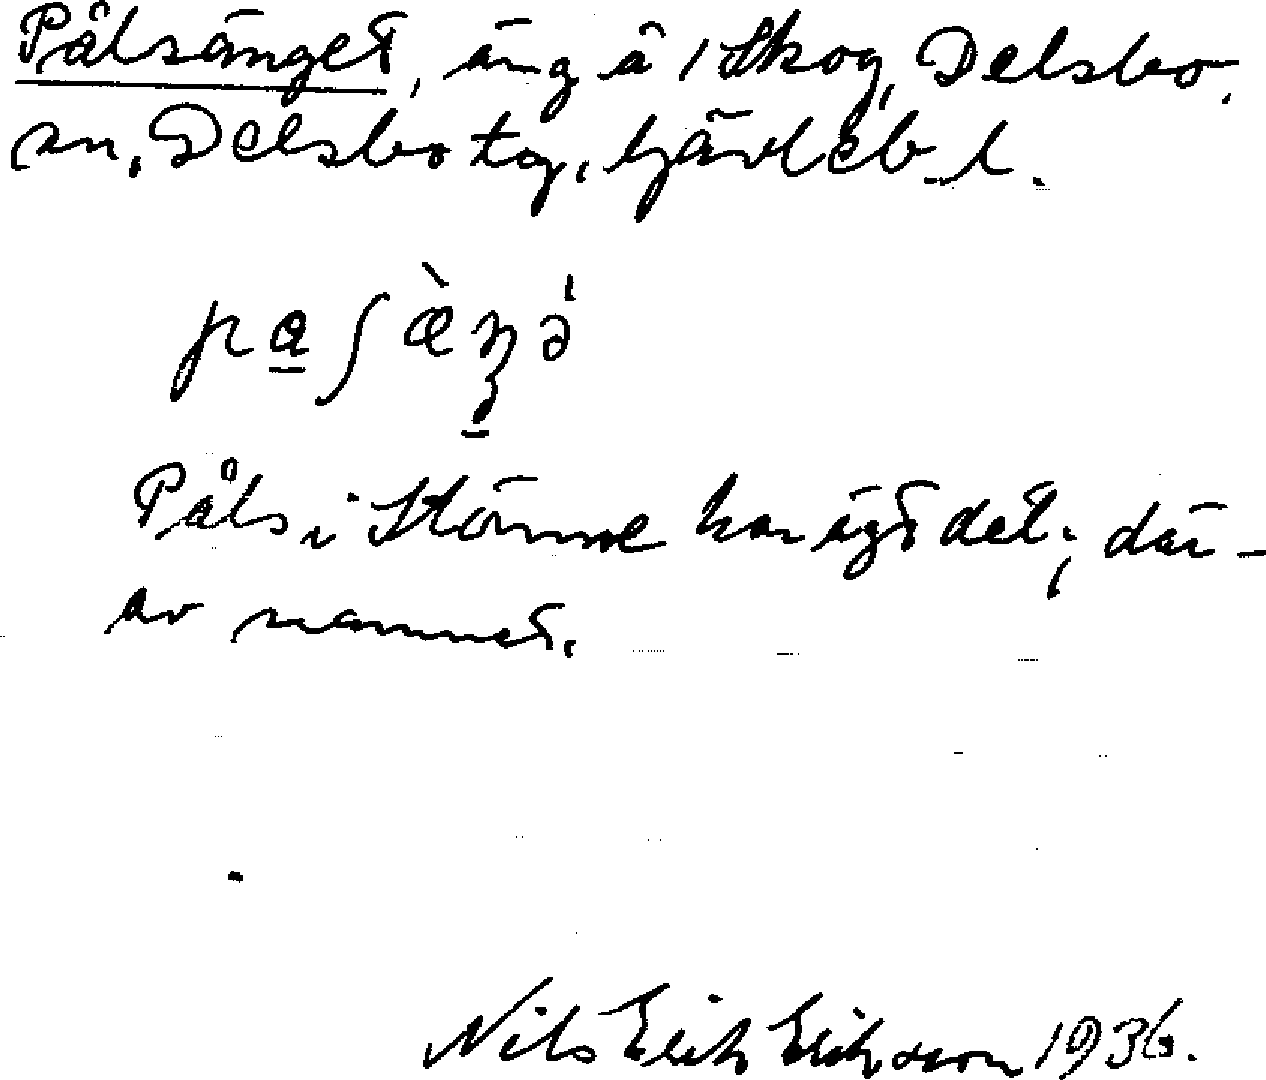 Pålsänget, äng å 1 Skog, Delsbo
sn, Delsbo tg, Gävleb. l.
Påls i Stömne har ägt det; där-
av namnet.
Nils Erik Eriksson 1936.